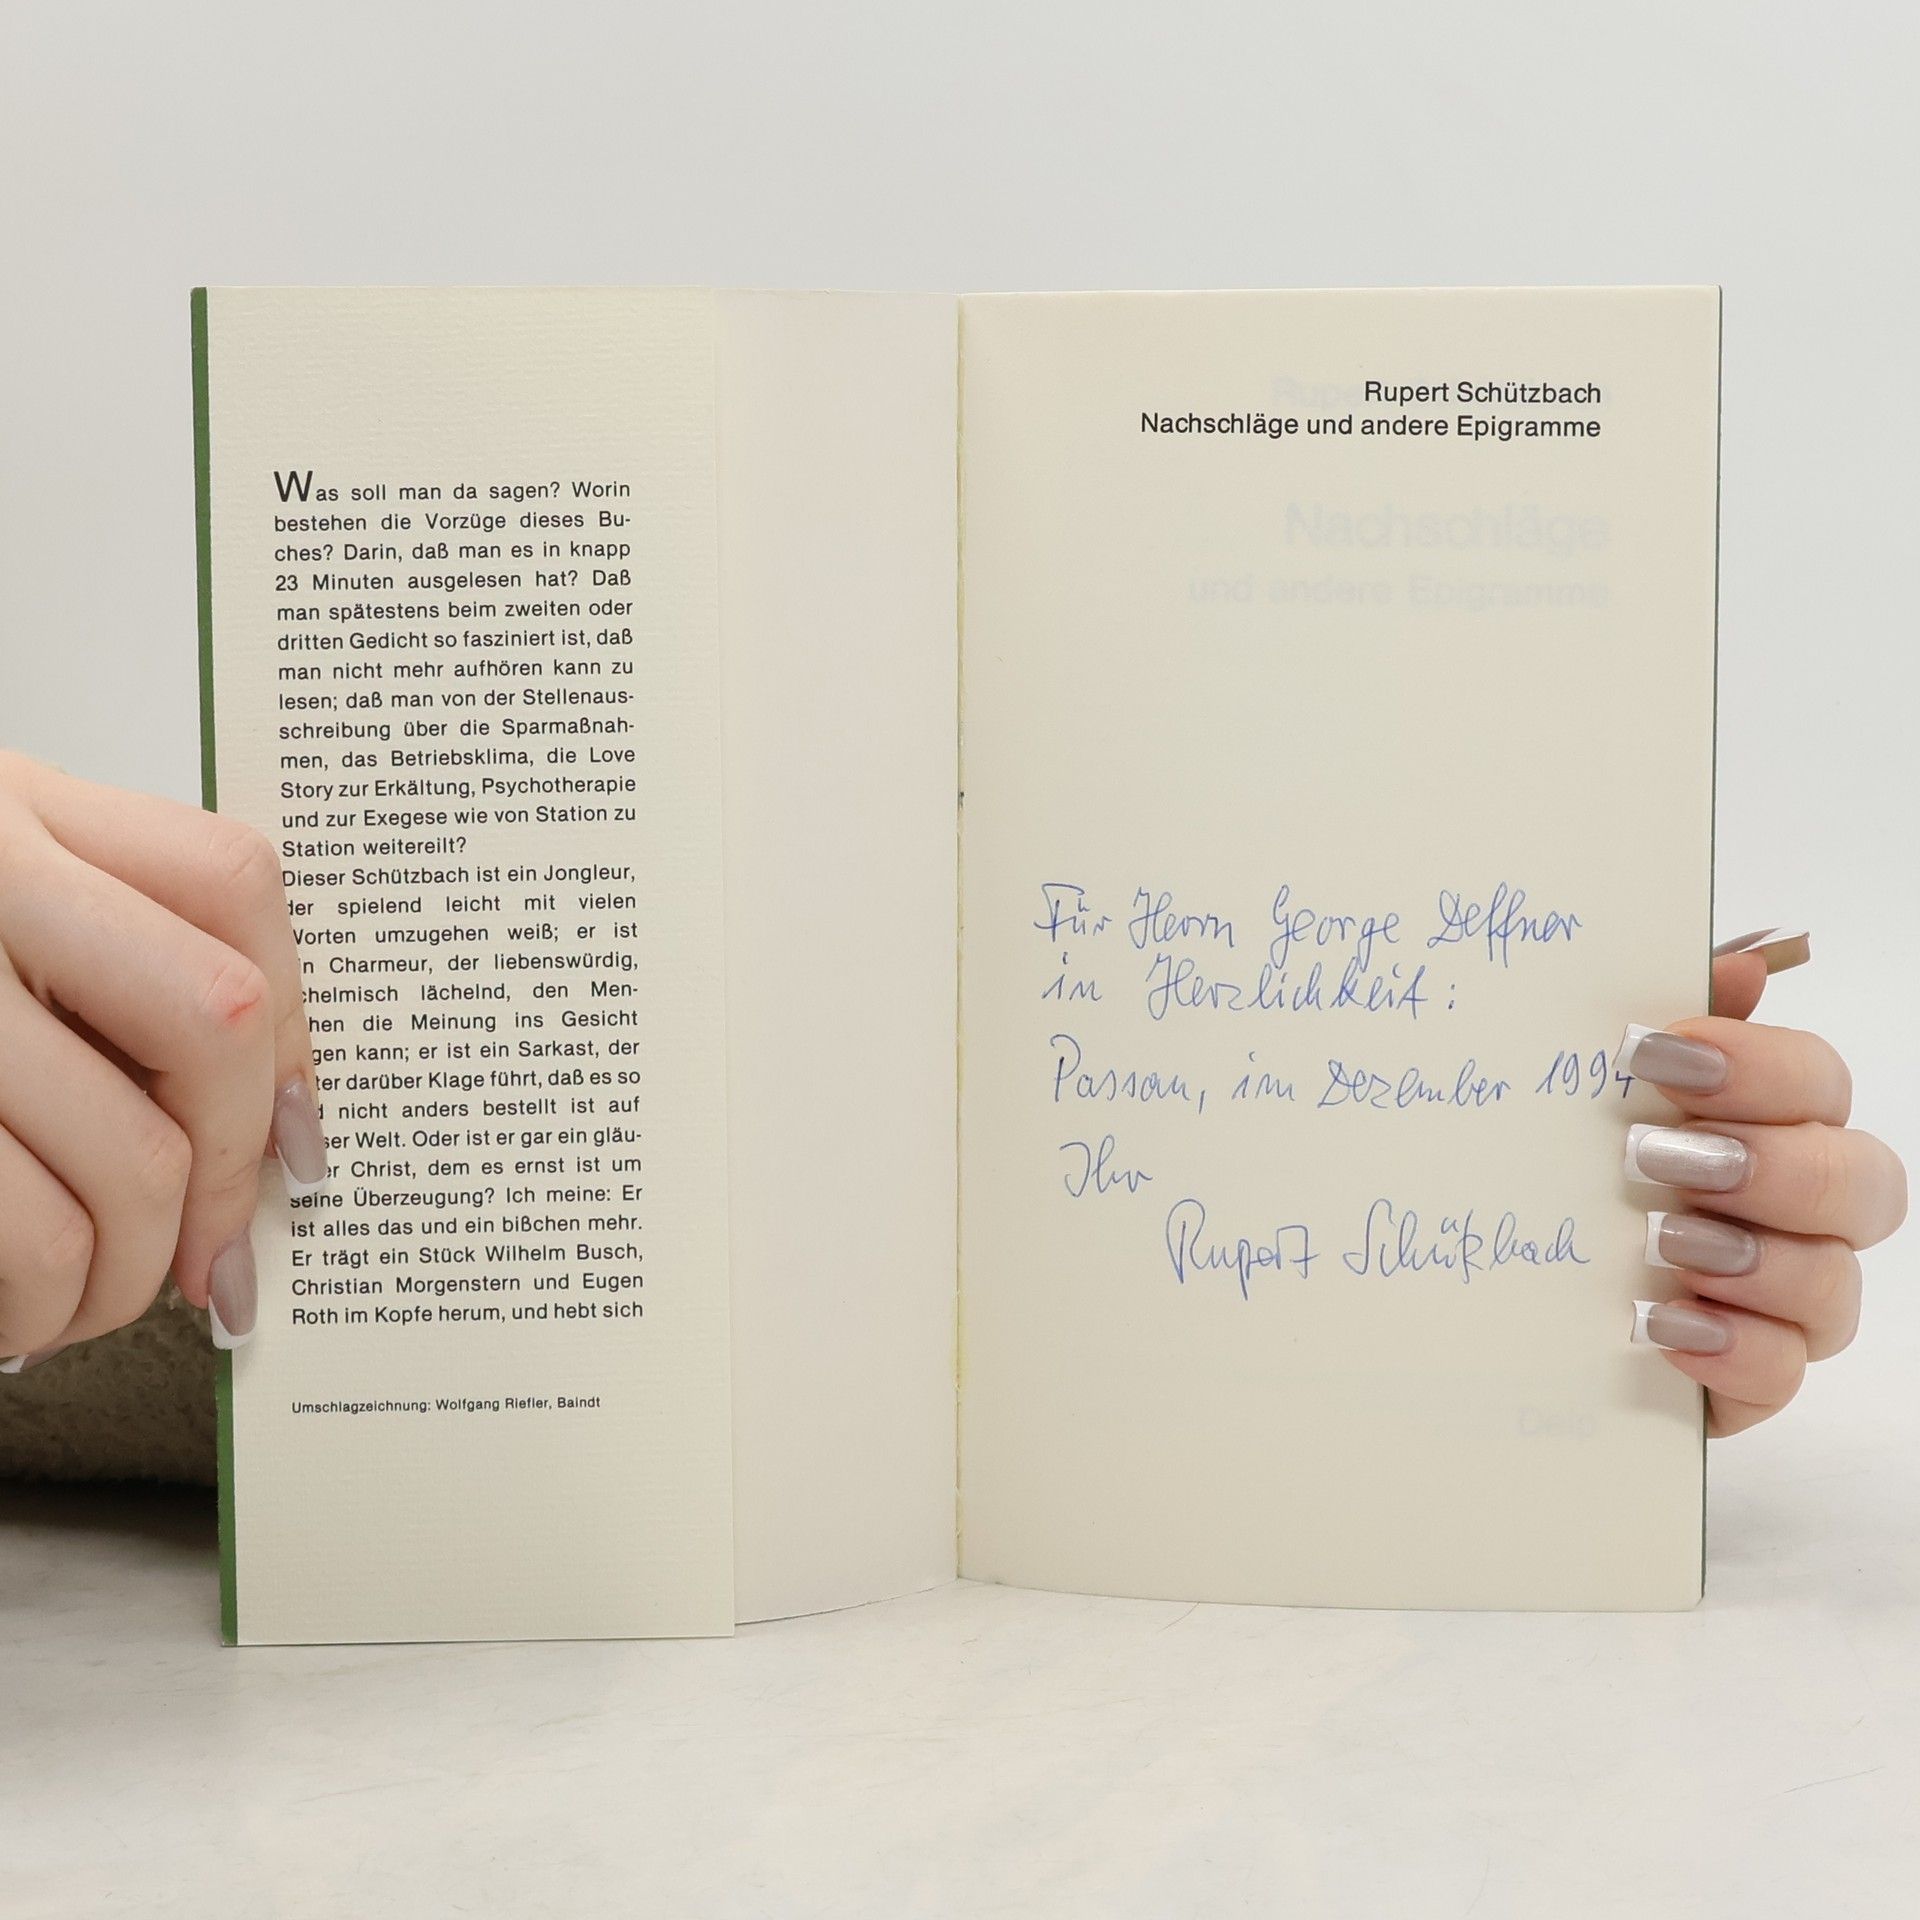 Was soll man da sagen? Worin
bestehen die Vorzüge dieses Bu-
ches? Darin, daß man es in knapp
23 Minuten ausgelesen hat? Daß
man spätestens beim zweiten oder
dritten Gedicht so fasziniert ist, daß
man nicht mehr aufhören kann zu
lesen; daß man von der Stellenaus-
schreibung über die Sparmaßnah-
men, das Betriebsklima, die Love
Story zur Erkältung, Psychotherapie
und zur Exegese wie von Station zu
Station weitereilt?
Dieser Schützbach ist ein Jongleur,
der spielend leicht mit vielen
Worten umzugehen weiß; er ist
in Charmeur, der liebenswürdig,
chelmisch lächelnd, den Men-
hen die Meinung ins Gesicht
gen kann; er ist ein Sarkast, der
ter darüber Klage führt, daß es so
d nicht anders bestellt ist auf
ser Welt. Oder ist er gar ein gläu-
er Christ, dem es ernst ist um
seine Überzeugung? Ich meine: Er
ist alles das und ein bißchen mehr.
Er trägt ein Stück Wilhelm Busch,
Christian Morgenstern und Eugen
Roth im Kopfe herum, und hebt sich
Umschlagzeichnung: Wolfgang Riefler, Baindt
Rupert Schützbach
Nachschläge und andere Epigramme
Nachschläge
und andere Epigramme
Für Herrn George Deffner
in Herzlichkeit:
Passau, im Dezember 1994
Ihr
Rupert Schützbach